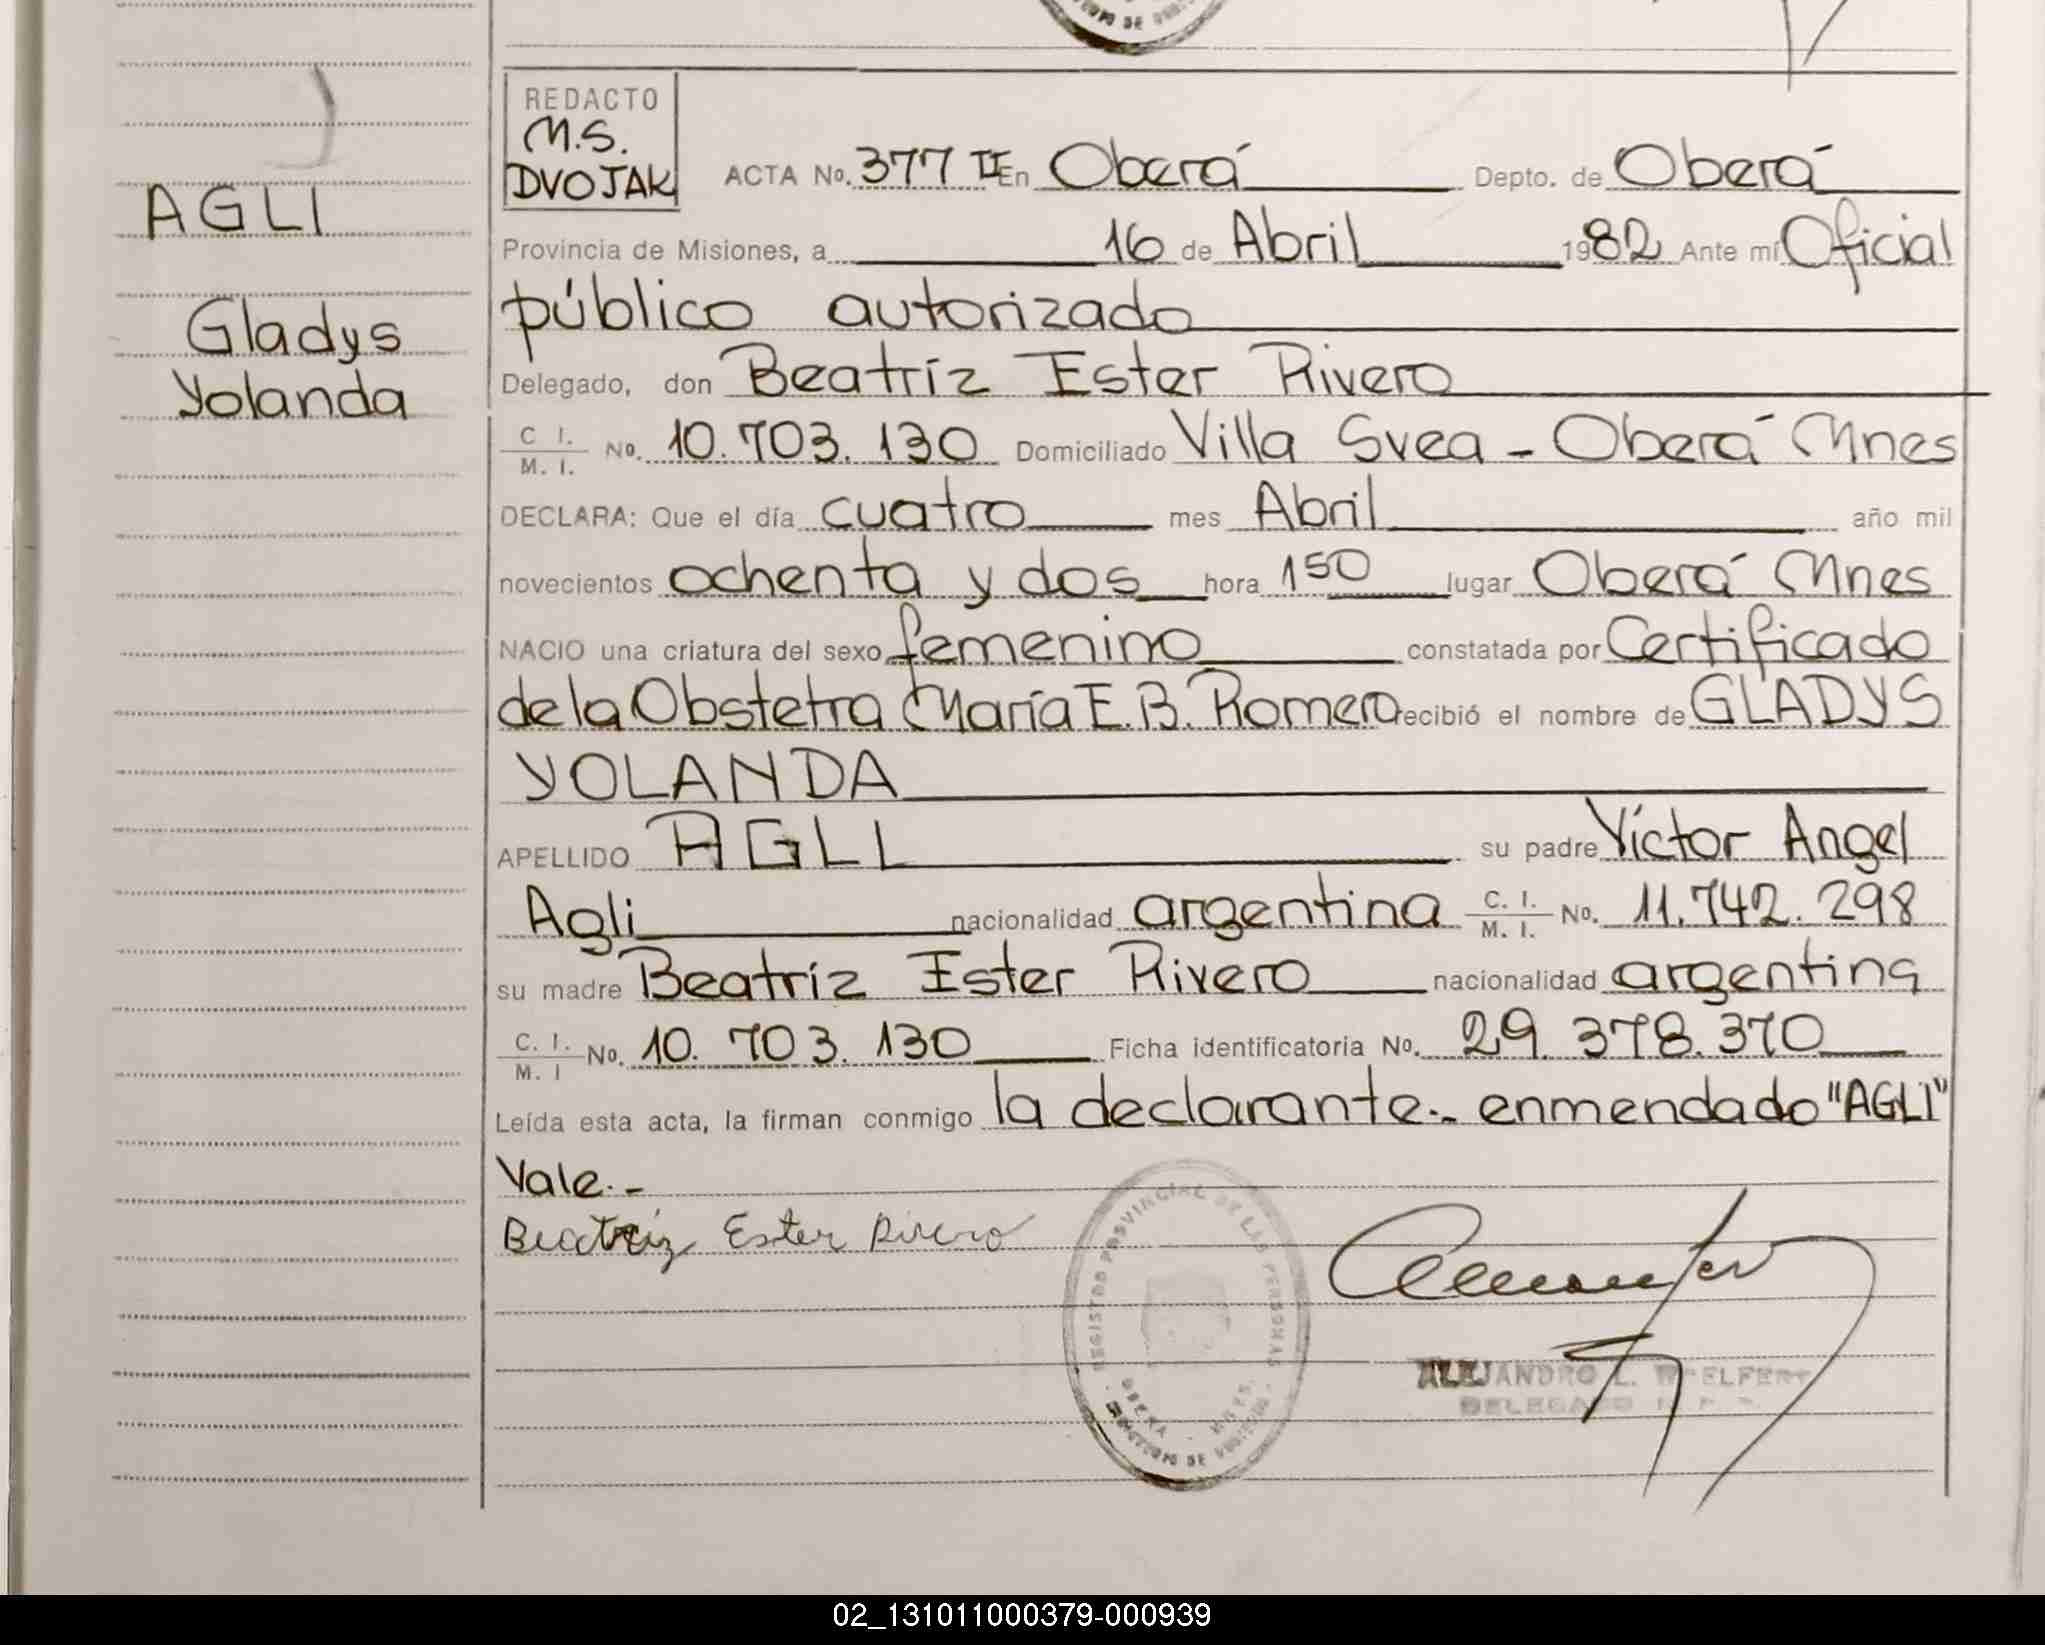 AGLI
Gladys
Yolanda
REDACTO
M.S.
DVOJAK
ACTA No. 377 II En Oberá Depto. de Oberá
Provincia de Misiones, a 16 de Abril 1982 Ante mí Oficial
público autorizado
Delegado, don Beatríz Ester Rivero
C I. / M. I. No. 10.703.130 Domiciliado Villa Svea - Oberá Mnes
DECLARA: Que el día cuatro mes Abril año mil
novecientos ochenta y dos hora 1 50 lugar Oberá Mnes
NACIO una criatura del sexo femenino constatada por Certificado
de la Obstetra María E. B. Romero recibió el nombre de GLADYS
YOLANDA
APELLIDO AGLI su padre Víctor Angel
Agli nacionalidad argentina C. I. / M. I. No. 11.742.298
su madre Beatríz Ester Rivero nacionalidad argentina
C. I. / M. I No. 10.703.130 Ficha identificatoria No. 29.378.370
Leída esta acta, la firman conmigo la declarante.- enmendado "AGLI"
Vale.-
Beatriz Ester Rivero
REGISTRO PROVINCIAL DE LAS PERSONAS
OBERA - MNES.
ALEJANDRO L.
DELEGADO
02_131011000379-000939